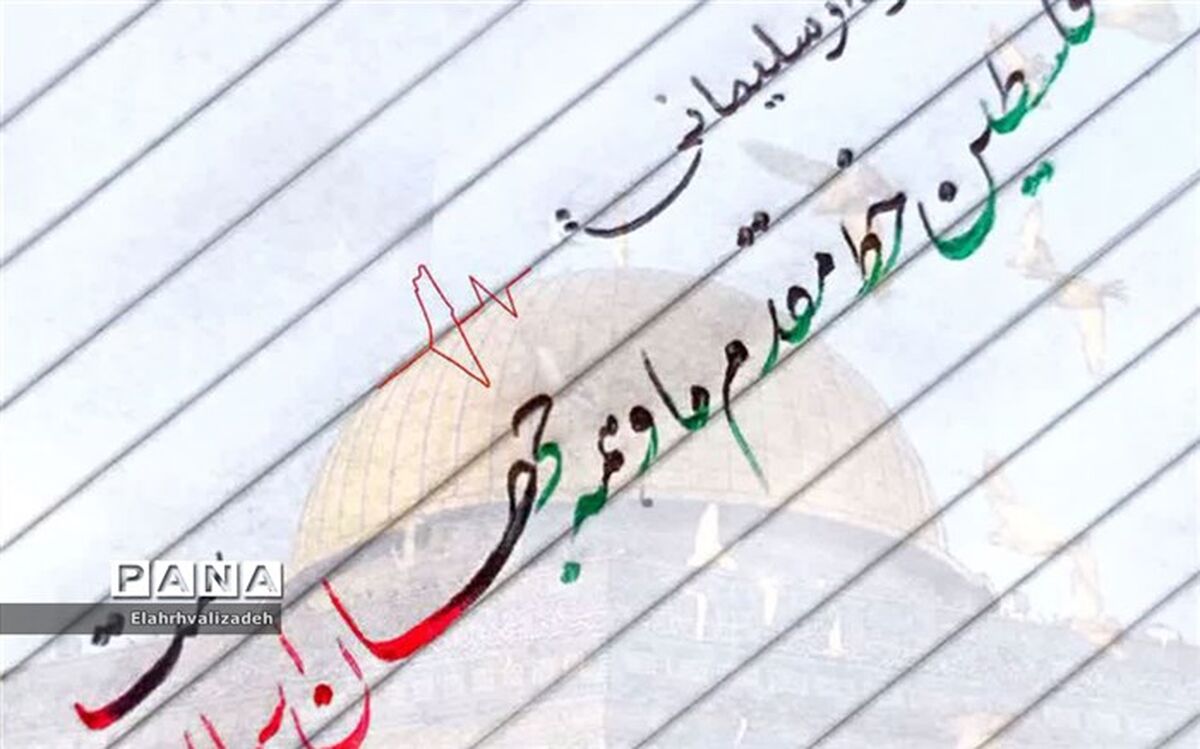 سلیمانی
فلسطین خط مقدم ما و همه جهان
PANA
Elahrhvalizadeh